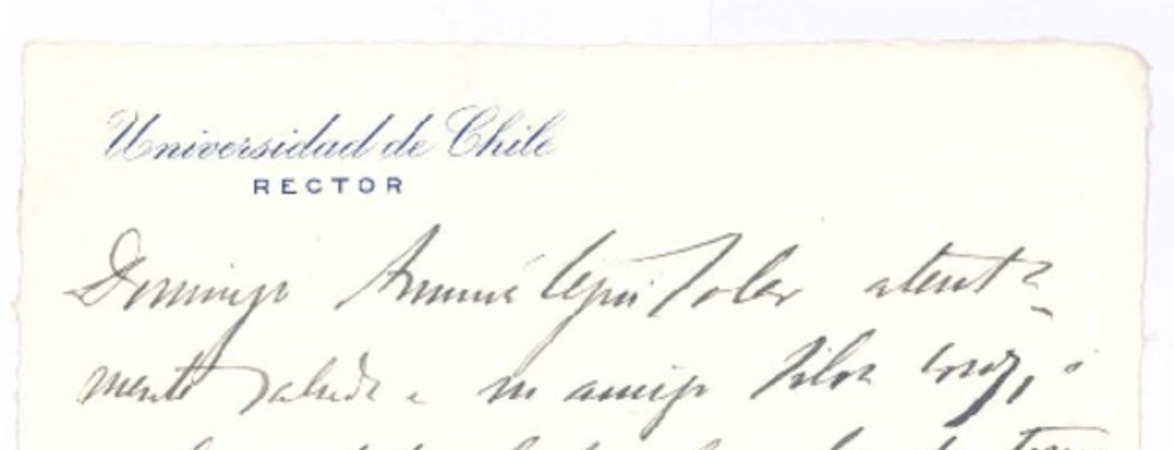 Universidad de Chile
RECTOR
Domingo Amunátegui Solar atenta-
mente saluda a su amigo Silva Cruz, i